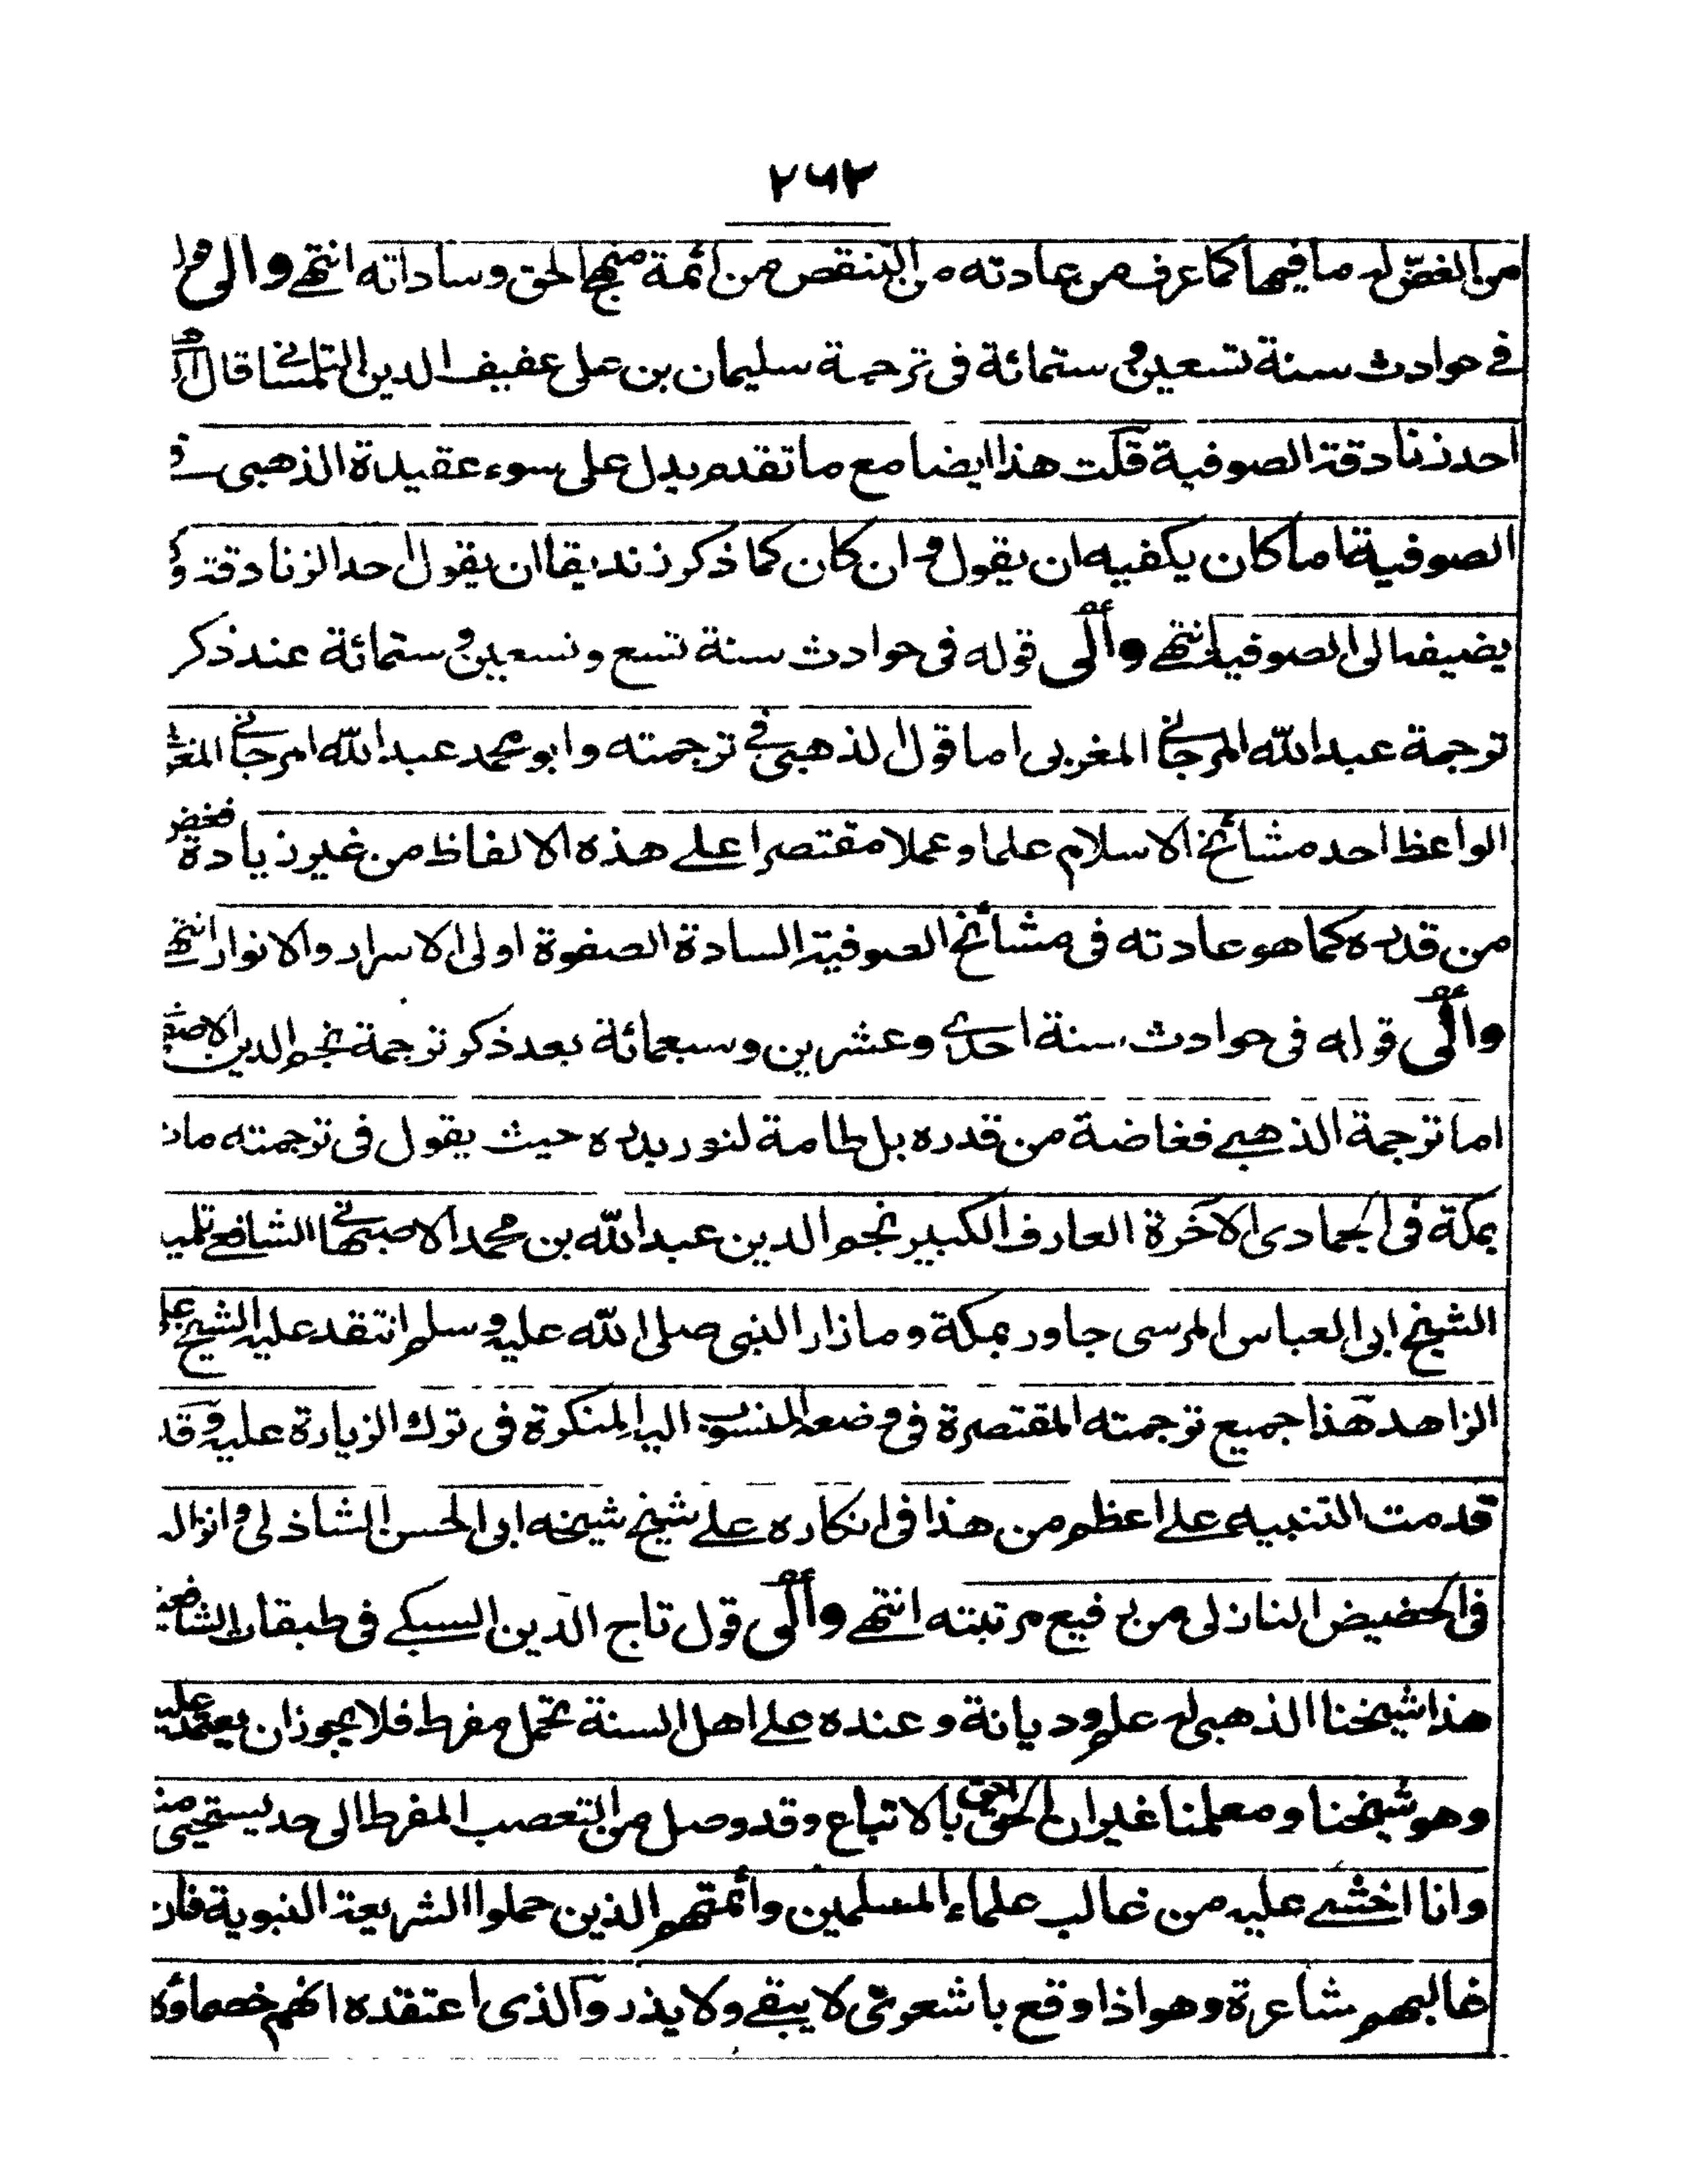 ٢٦٢
من الغضّ له ما فيها كما عرف من عادته من التنقص من ائمة منهج الحق وساداته انتهى والى قوله
فى حوادث سنة تسعين وستمائة فى ترجمة سليمان بن على عفيف الدين التلمسانى قال
احد زنادقة الصوفية قلت هذا ايضا مع ما تقدم يدل على سوء عقيدة الذهبى فى
الصوفية اما كان يكفيه ان يقول وان كان كما ذكر زنديقا ان يقول احد الزنادقة و
يضيفه الى الصوفية انتهى وآلى قوله فى حوادث سنة تسع وتسعين وستمائة عند ذكر
ترجمة عبد الله المرجانى المغربى اما قول الذهبى فى ترجمته وابو محمد عبد الله المرجانى المغربى
الواعظ احد مشائخ الاسلام علما وعملا مقتصرا على هذه الالفاظ من غير زيادة فغض
من قدره كما هو عادته فى مشائخ الصوفية السادة الصفوة اولى الاسرار والانوار انتهى
وآلى قوله فى حوادث سنة احدى وعشرين وسبعمائة بعد ذكر ترجمة نجم الدين الاصفهانى
اما ترجمة الذهبى فغاضة من قدره بل طامة لنور بدره حيث يقول فى ترجمته مات
بمكة فى الجمادى الآخرة العارف الكبير نجم الدين عبد الله بن محمد الاصبهانى الشافعى تلميذ
الشيخ ابى العباس المرسى جاور بمكة وما زار النبى صلى الله عليه وسلم انتقد عليه الشيخ على
الزاهد هذا جميع ترجمته المقتصرة فى وضعه المنسوب اليه المنكرة فى ترك الزيارة عليه وقد
قدمت التنبيه على اعظم من هذا فى انكاره على شيخ شيخه ابى الحسن الشاذلى وانزاله
فى الحضيض النازلى من رفيع مرتبته انتهى وآلى قول تاج الدين السبكى فى طبقات الشافعية
هذا شيخنا الذهبى له علم وديانة وعنده على اهل السنة تحمل مفرط فلا يجوز ان يعتمد عليه
وهو شيخنا ومعلمنا غير ان الحق احق بالاتباع وقد وصل من التعصب المفرط الى حد يستحيى منه
وانا اخشى عليه من غالب علماء المسلمين وائمتهم الذين حملوا الشريعة النبوية فان
غالبهم شاعرة وهو اذا وقع باشعرى لا يبقى ولا يذر والذى اعتقده انهم خصماؤه